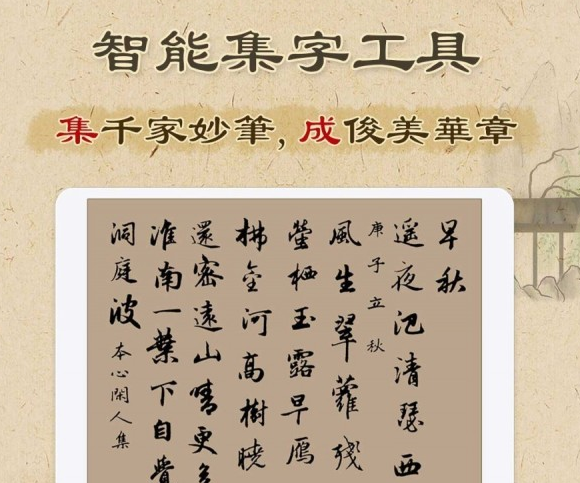 智能集字工具
集千家妙筆, 成俊美華章
早秋
遥夜氾清瑟西
庚子立秋
風生翠蘿殘
螢栖玉露早雁
拂金河高樹曉
還密遠山晴更
淮南一葉下自覺
洞庭波 本心閑人集